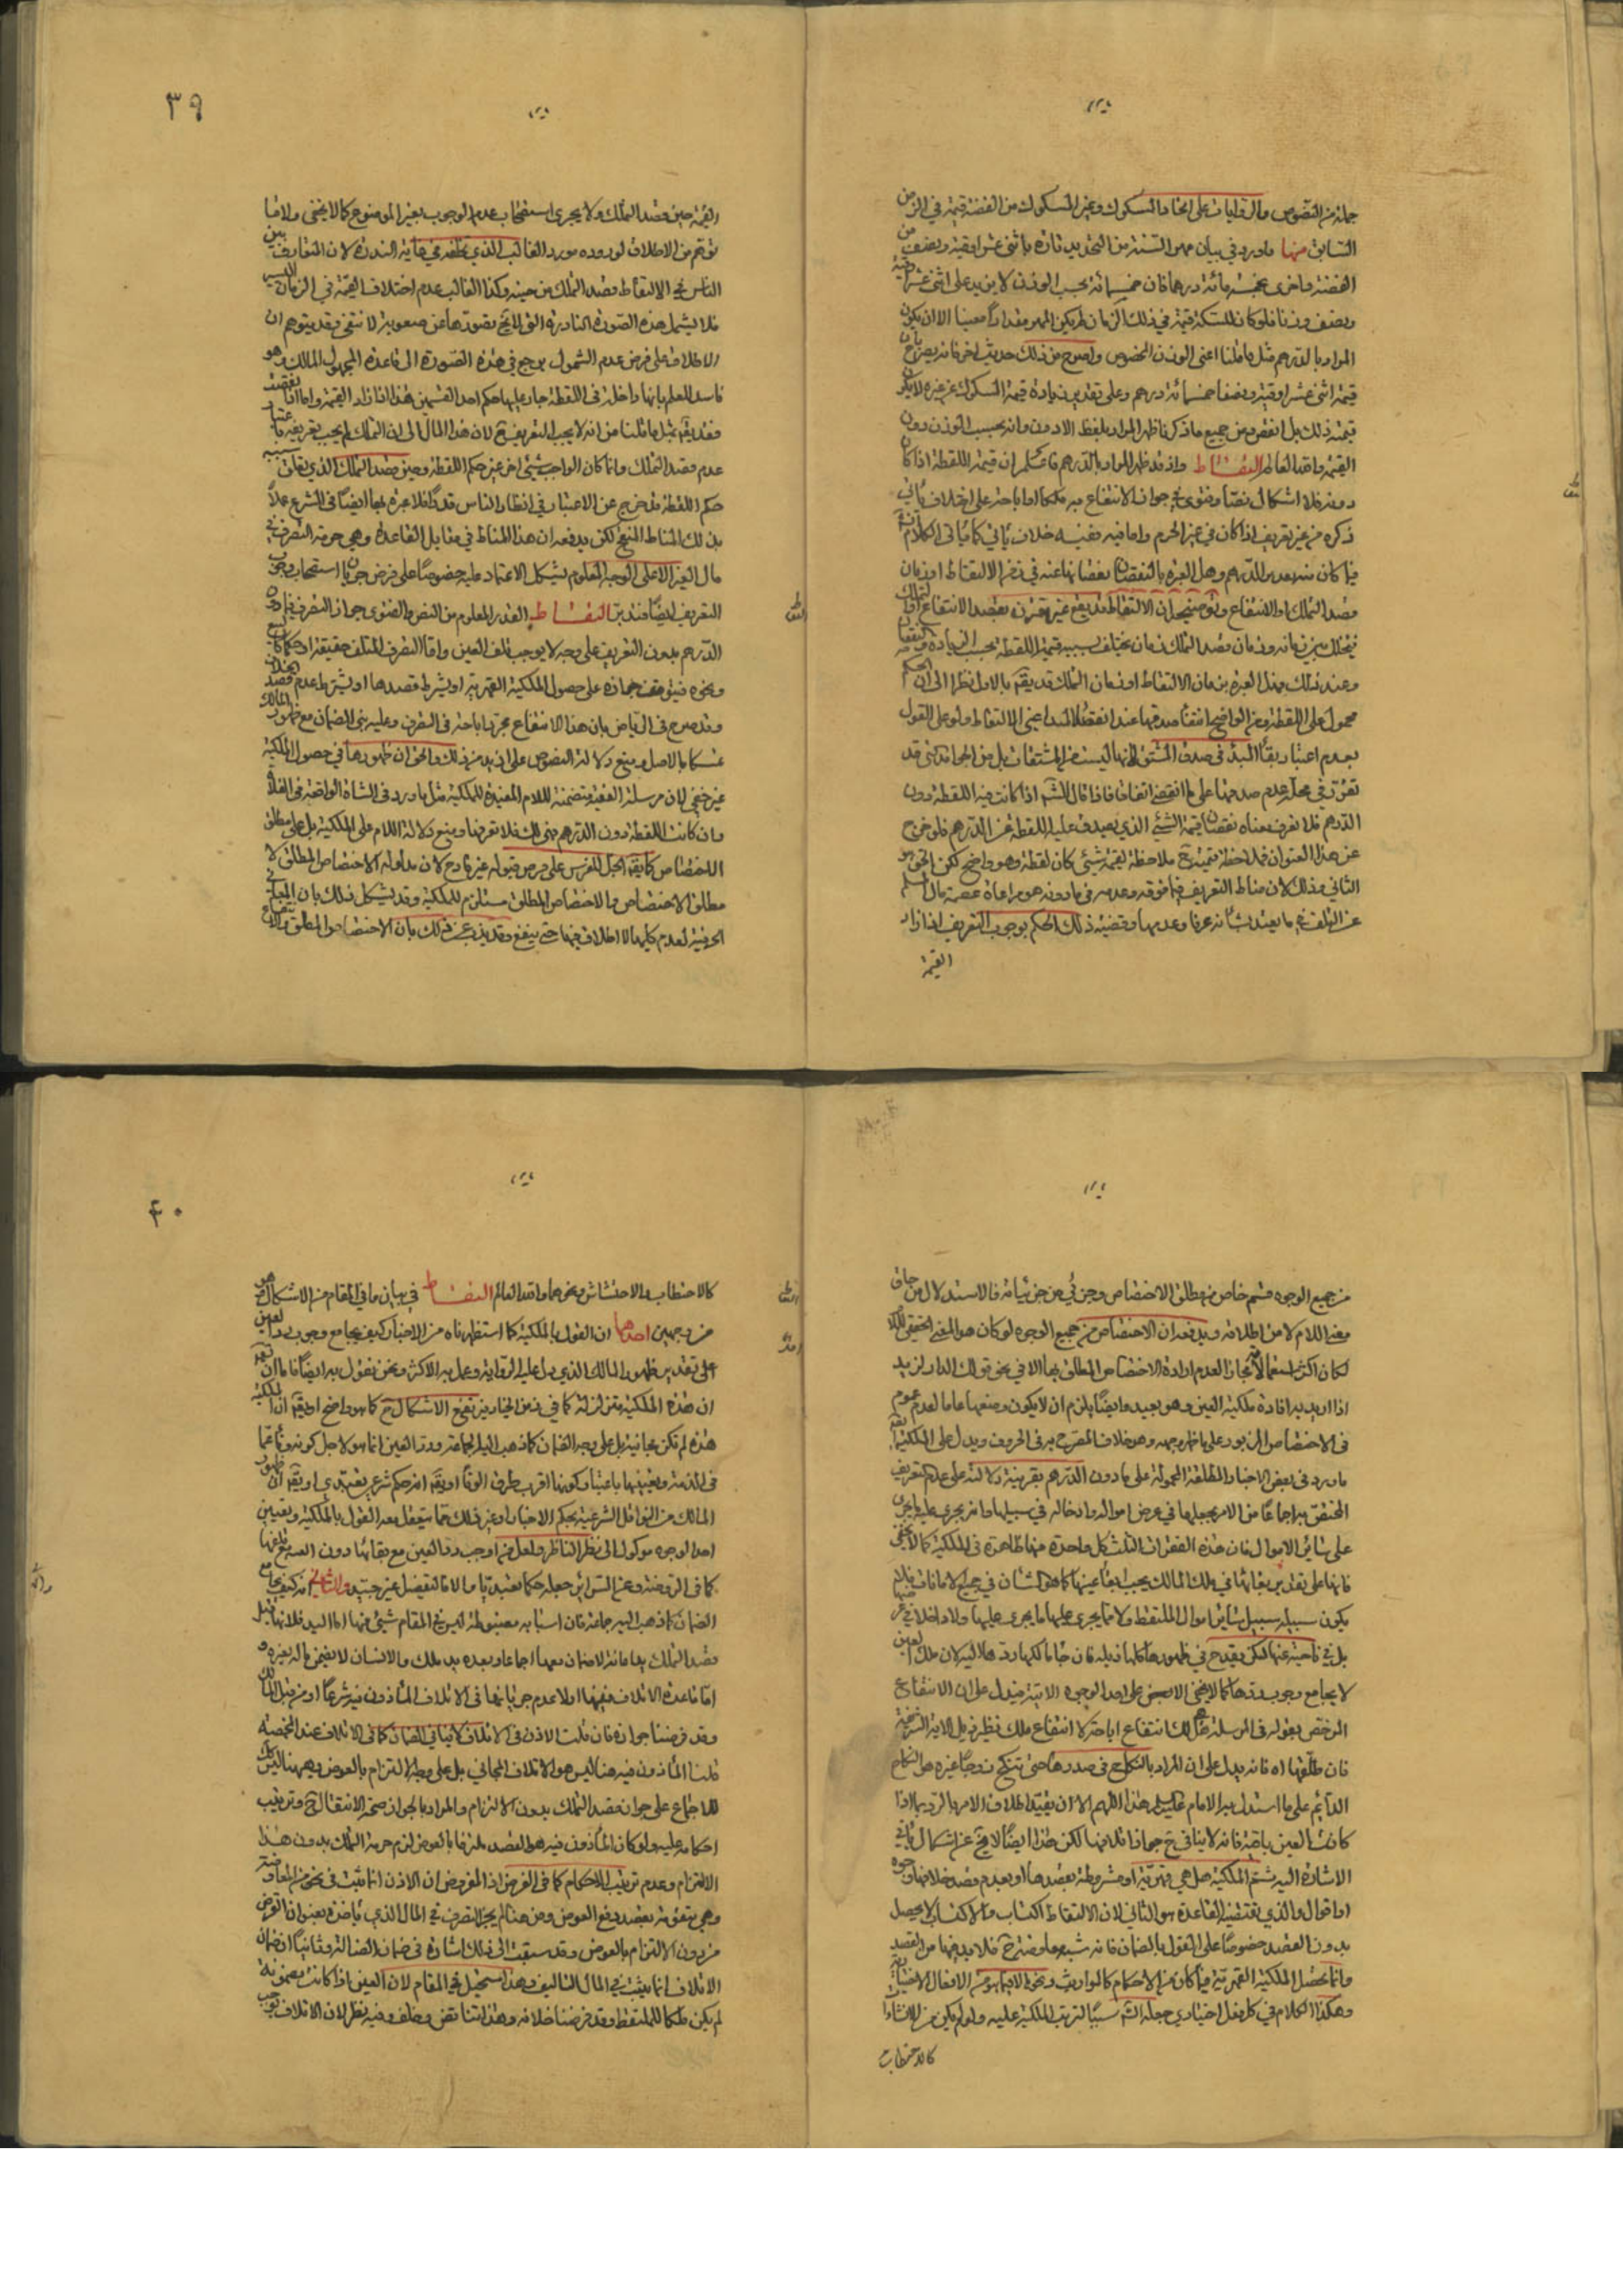 جملة من النصوص والروايات على اتحاد المسكوك وغير المسكوك من الفضة قيمة في الزمن
السابق منها ما ورد في بيان مهر السنة من التحديد تارة باثنى عشر اوقية ونصف من
الفضة واخرى بخمسمائة درهم فان خمسمائة بحسب الوزن لا يزيد على اثنى عشر اوقية
ونصف وزنا فلو كان للسكة قيمة في ذلك الزمان لم يكن المهر مقدارا معينا الا ان يكون
المراد بالدرهم مثل ما قلنا اعنى الوزن المخصوص واصرح من ذلك حديث اخر فانه يصرح بان
قيمة اثنى عشر اوقية ونصف خمسمائة درهم وعلى تقدير زيادة قيمة المسكوك عن غيره لا يكون
قيمته ذلك بل انقص ومن جميع ما ذكر ظهر المراد بلفظ الادون وانه بحسب الوزن دون
القيمة والله العالم التقاط واذ قد ظهر المراد بالدرهم فاعلم ان قيمة اللقطة اذا كان
دونه فلا اشكال نصا وفتوى في جواز الانتفاع به ملكا او اباحة على اختلاف ياتي
ذكره من غير تعريف اذا كان في غير الحرم واما فيه ففيه خلاف ياتي كما ياتي الكلام
فيما كان بقدر الدرهم وهل العبرة بالنقصان نقصانها عنه في زمن الالتقاط او زمان
قصد التملك او الانتفاع وتوضيحه ان الالتقاط قد يقع غير مقترن بقصد الانتفاع او التملك
فيتخلل بين زمانه وزمان قصد التملك زمان يختلف بسببه قيمة اللقطة بحسب الزيادة والنقصان
وعند ذلك فهل العبرة بزمان الالتقاط او زمان التملك قد يقال بالاول نظرا الى ان الحكم
محمول على اللقطة ومن الواضح انتفاء صدقها عند انقضاء المبدا اعنى الالتقاط ولو على القول
بعدم اعتبار بقاء المبدء في صدق المشتق لانها ليست من المشتقات بل من الجوامد التى قد
تقرر في محله عدم صدقها على ما انقضى اتفاقا فاذا قال الشارع اذا كانت قيمة اللقطة دون
الدرهم فلا نعرف معناه نقصان قيمة الشيء الذي يصدق عليه اللقطة عن الدرهم فلو خرج
عن هذا العنوان فملاحظة قيمته ملاحظة لقيمة شيئ كان لقطة وهو واضح لكن الحق هو
الثاني وذلك لان مناط التعريف فيما فوقه وعدمه في ما دونه هو مراعاة عصمة مال المسلم
عن التلف فيما يعتد بشانه عرفا وعدمها وقضية ذلك الحكم بوجوب التعريف اذا زاد
القيمة
٣٩
القيمة حين قصد التملك ولا يجرى استصحاب عدم الوجوب بغير الموضوع كما لا يخفى ولا ما
يتوهم من الاطلاق لوروده مورد الغالب الذي خلافه في غاية الندرة لان المتعارف بين
الناس في الالتقاط قصد التملك من حينه وكذا الغالب عدم اختلاف القيمة في الزمان اليسير
فلا يشمل هذه الصورة النادرة التى لا يخ تصورها عن صعوبة لا تنقض وقد يتوهم ان
الاطلاق على فرض عدم الشمول يرجع في هذه الصورة الى قاعدة المجهول المالك وهو
فاسد للعلم بانها داخلة في اللقطة جار عليها حكم احد القسمين هذا اذا زاد القيمة واما اذا نقصت
فقد يقال بمثل ما قلنا من انه لا يجب التعريف لان هذا المال الى ان التملك لم يجب تعريفه باعتبار
عدم قصد التملك وانما كان الواجب شيئ اخر غير حكم اللقطة وحين قصد التملك الذي يتعلق بسببه
حكم اللقطة قد خرج عن الاعتبار في انظار الناس قدرا فلا عبرة بها ايضا في الشرع عملا
بذلك المناط المنقح لكن يدفعه ان هذا المناط في مقابل القاعدة وهي حرمة التصرف في
مال الغير الا على الوجه المعلوم يشكل الاعتماد عليه خصوصا على فرض جريان استصحاب وجوب
التعريف ايضا فتدبر التقاط القدر المعلوم من النص والفتوى جواز التصرف فيما دون
الدرهم بدون التعريف على وجه لا يوجب تلف العين واما التصرف المتلف حقيقة او حكما كالبيع
ونحوه فيتوقف جوازه على حصول الملكية القهرية او بشرط قصدها او بشرط عدم قصد الخلاف
وقد صرح في الرياض بان هذا الانتفاع مجرد اباحة في التصرف وعليه بنى الضمان مع ظهور المالك
تمسكا بالاصل ومنع دلالة النصوص على ازيد من ذلك والحق ان ظهورها في حصول الملكية
غير خفي لان مرسلة الفقيه متضمنة للام المفيدة للملكية مثل ما ورد في الشاة الواقعة في الفلاة
وان كانت اللقطة دون الدرهم فهى لك فلا تعرفها ومنع دلالة اللام على الملكية بل على مطلق
الاختصاص كما يقال الجل للفرس على فرض قبوله غير قادح لان مدلوله الاختصاص المطلق لا
مطلق الاختصاص والاختصاص المطلق مستلزم للملكية وقد يشكل ذلك بان المعانى
الحرفية لعدم كليتها لا اطلاق فيها حتى ينفع وقد يذب عن ذلك بان الاختصاص المطلق والاختصاص
من جميع الوجوه قسم خاص من مطلق الاختصاص وجزئي من جزئياته فالاستدلال من حاق
معنى اللام لا من اطلاقه ويدفعه ان الاختصاص من جميع الوجوه لو كان هو المعنى الحقيقى للام
لكان اكثر استعمالاته مجازا لعدم ارادة الاختصاص المطلق بها الا في نحو قولك الدار لزيد
اذا اريد به افادة ملكية العين وهو بعيد وايضا يلزم ان لا يكون وضعها عاما لعدم عموم
في الاختصاص المزبور على ما ظهر وجهه وهو خلاف المصرح به في الحروف ويدل على الملكية ايضا
ما ورد في بعض الاخبار المطلقة المحمولة على ما دون الدرهم بقرينة دلالته على عدم التعريف
المختص به اجماعا من الامر بجعلها في عرض امواله وادخاله في سبيلها وانه يجرى عليه ما يجرى
على سائر الاموال فان هذه الفقرات الثلث كل واحدة منها ظاهرة في الملكية كما لا يخفى
فانها على تقدير بقائها في ملك المالك يجب ابقاء عينها كما هو الشان في جميع الامانات فلا
يكون سبيله سبيل سائر اموال الملتقط ولا مما يجرى عليها ما يجرى عليها ولا داخلا في عرضها
بل في ناحية عنها لكن يقدح في ظهورها كلها ذيله فان جاء مالكها ردها اليه لان ملك العين
لا يجامع وجوب ردها كما لا يخفى الا بمضى على احد الوجوه الاتية فيدل على ان الانتفاع
المرخص بقوله في المرسلة هى لك انتفاع اباحة لا انتفاع ملك نظير ذيل الاية الشريفة
فان طلقها اه فانه يدل على ان المراد بالنكاح في صدرها حتى تنكح زوجا غيره هو النكاح
الدائم على ما استدل به الامام عليه السلم هذا اللهم الا ان يقيد اطلاق الامر بالرد بما اذا
كانت العين باقية فانه لا ينافى ح جواز اتلافها لكن هذا ايضا لا يخ عن اشكال ياتى
الاشارة اليه ثم الملكية هل هي قهرية او مشروطة بقصدها او بعدم قصد خلافها وجوه
او اقوال والذي يقتضيه القاعدة هو الثاني لان الالتقاط اكتساب والاكتساب لا يحصل
بدون القصد خصوصا على القول بالضمان فانه شبه معاوضة ح فلا بد فيها من القصد
وانما يحصل الملكية القهرية فيما كان من الاحكام كالمواريث ونحوه لا فيما هو من الافعال الاختيارية
وهكذا الكلام في كل فعل اختياري جعله الشارع سببا لترتب الملكية عليه ولو لم يكن من الانشاءات
كالاحتطاب
٤٠
كالاحتطاب والاحتشاش ونحوهما والله العالم التقاط في بيان ما في المقام من الاشكال وهو
من وجهين احدهما ان القول بالملكية كما استظهرناه من الاخبار كيف يجامع وجوب رد العين
على تقدير ظهور المالك الذي دل عليه الرواية وعمل به الاكثر ونحن نقول به ايضا فاما ان يقال
ان هذه الملكية متزلزلة كما في زمن الخيار فيرتفع الاشكال ح كما هو واضح او يقال ان الملكية
هذه لم تكن مجانية بل على وجه الضمان كما ذهب اليه الجماعة ورد العين انما هو لاجل كونه وفاء عما
في الذمة وتعيينها باعتبار كونها اقرب طرق الوفاء او يقال انه حكم شرعي تعبدي او يقال ان ظهور
المالك من النواقل الشرعية بحكم الاخبار او غير ذلك مما يتعقل معه القول بالملكية وتعيين
احد الوجوه موكول الى نظر الناظر ولعل من اوجب رد العين مع بقائها دون البدل مع تلفها
كما في الروضة وعن السرائر جعله حكما تعبديا والا فالتفصيل غير جيد والثانى انه كيف يجامع
الضمان كما ذهب اليه جماعة فان اسبابه مضبوطة ليس في المقام شيئ منها اما اليد فلانها قبل
قصد التملك يد امانة لا ضمان معها اجماعا وبعده يد ملك والانسان لا يضمن ماله بغيره و
اما قاعدة الاتلاف ففيها اولا عدم جريانها في الاتلاف المأذون فيه شرعا او من قبل المالك
وقد فرضنا جوازه فان قلت الاذن في الاتلاف لا ينافى الضمان كما في الاتلاف عند المخمصة
قلت المأذون فيه هنا ليس هو الاتلاف المجاني بل على وجه الالتزام بالعوض وههنا ليس كذلك
للاجماع على جواز قصد التملك بدون الالتزام والمراد بالجواز صحة الانتقال ح وترتيب
احكامه عليه ولو كان المأذون فيه هو القصد ملتزما بالعوض لزم حرمة التملك بدون هذا
الالتزام وعدم ترتيب الاحكام كما في القرض اذ المفروض ان الاذن انما ثبت في نحو من المعاوضة
وهي متقومة بقصد دفع العوض ومن هنا لم يجز التصرف في المال الذي يأخذه بعنوان القرض
من دون الالتزام بالعوض وقد سبقت الى ذلك اشارة في ضمان الضالة وثانيا ان ضمان
الاتلاف انما يثبت في المال التالف وهذا مستحيل في المقام لان العين اذا كانت مضمونة
لم يكن ملكا للملتقط وقد فرضنا خلافه وهذا تناقض وخلف وفيه نظر لان الاتلاف يوجب